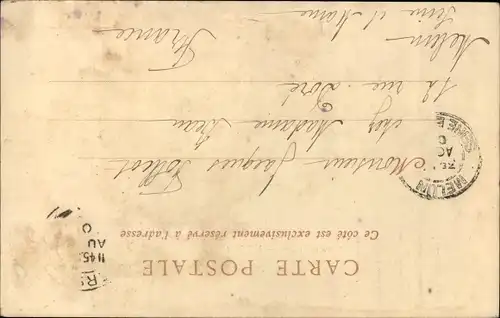 CARTE POSTALE
Ce côté est exclusivement réservé à l'adresse
Monsieur Jacques
chez Madame
12 rue Doré
Melun
Seine et Marne
France
MELUN
1145
AU
C